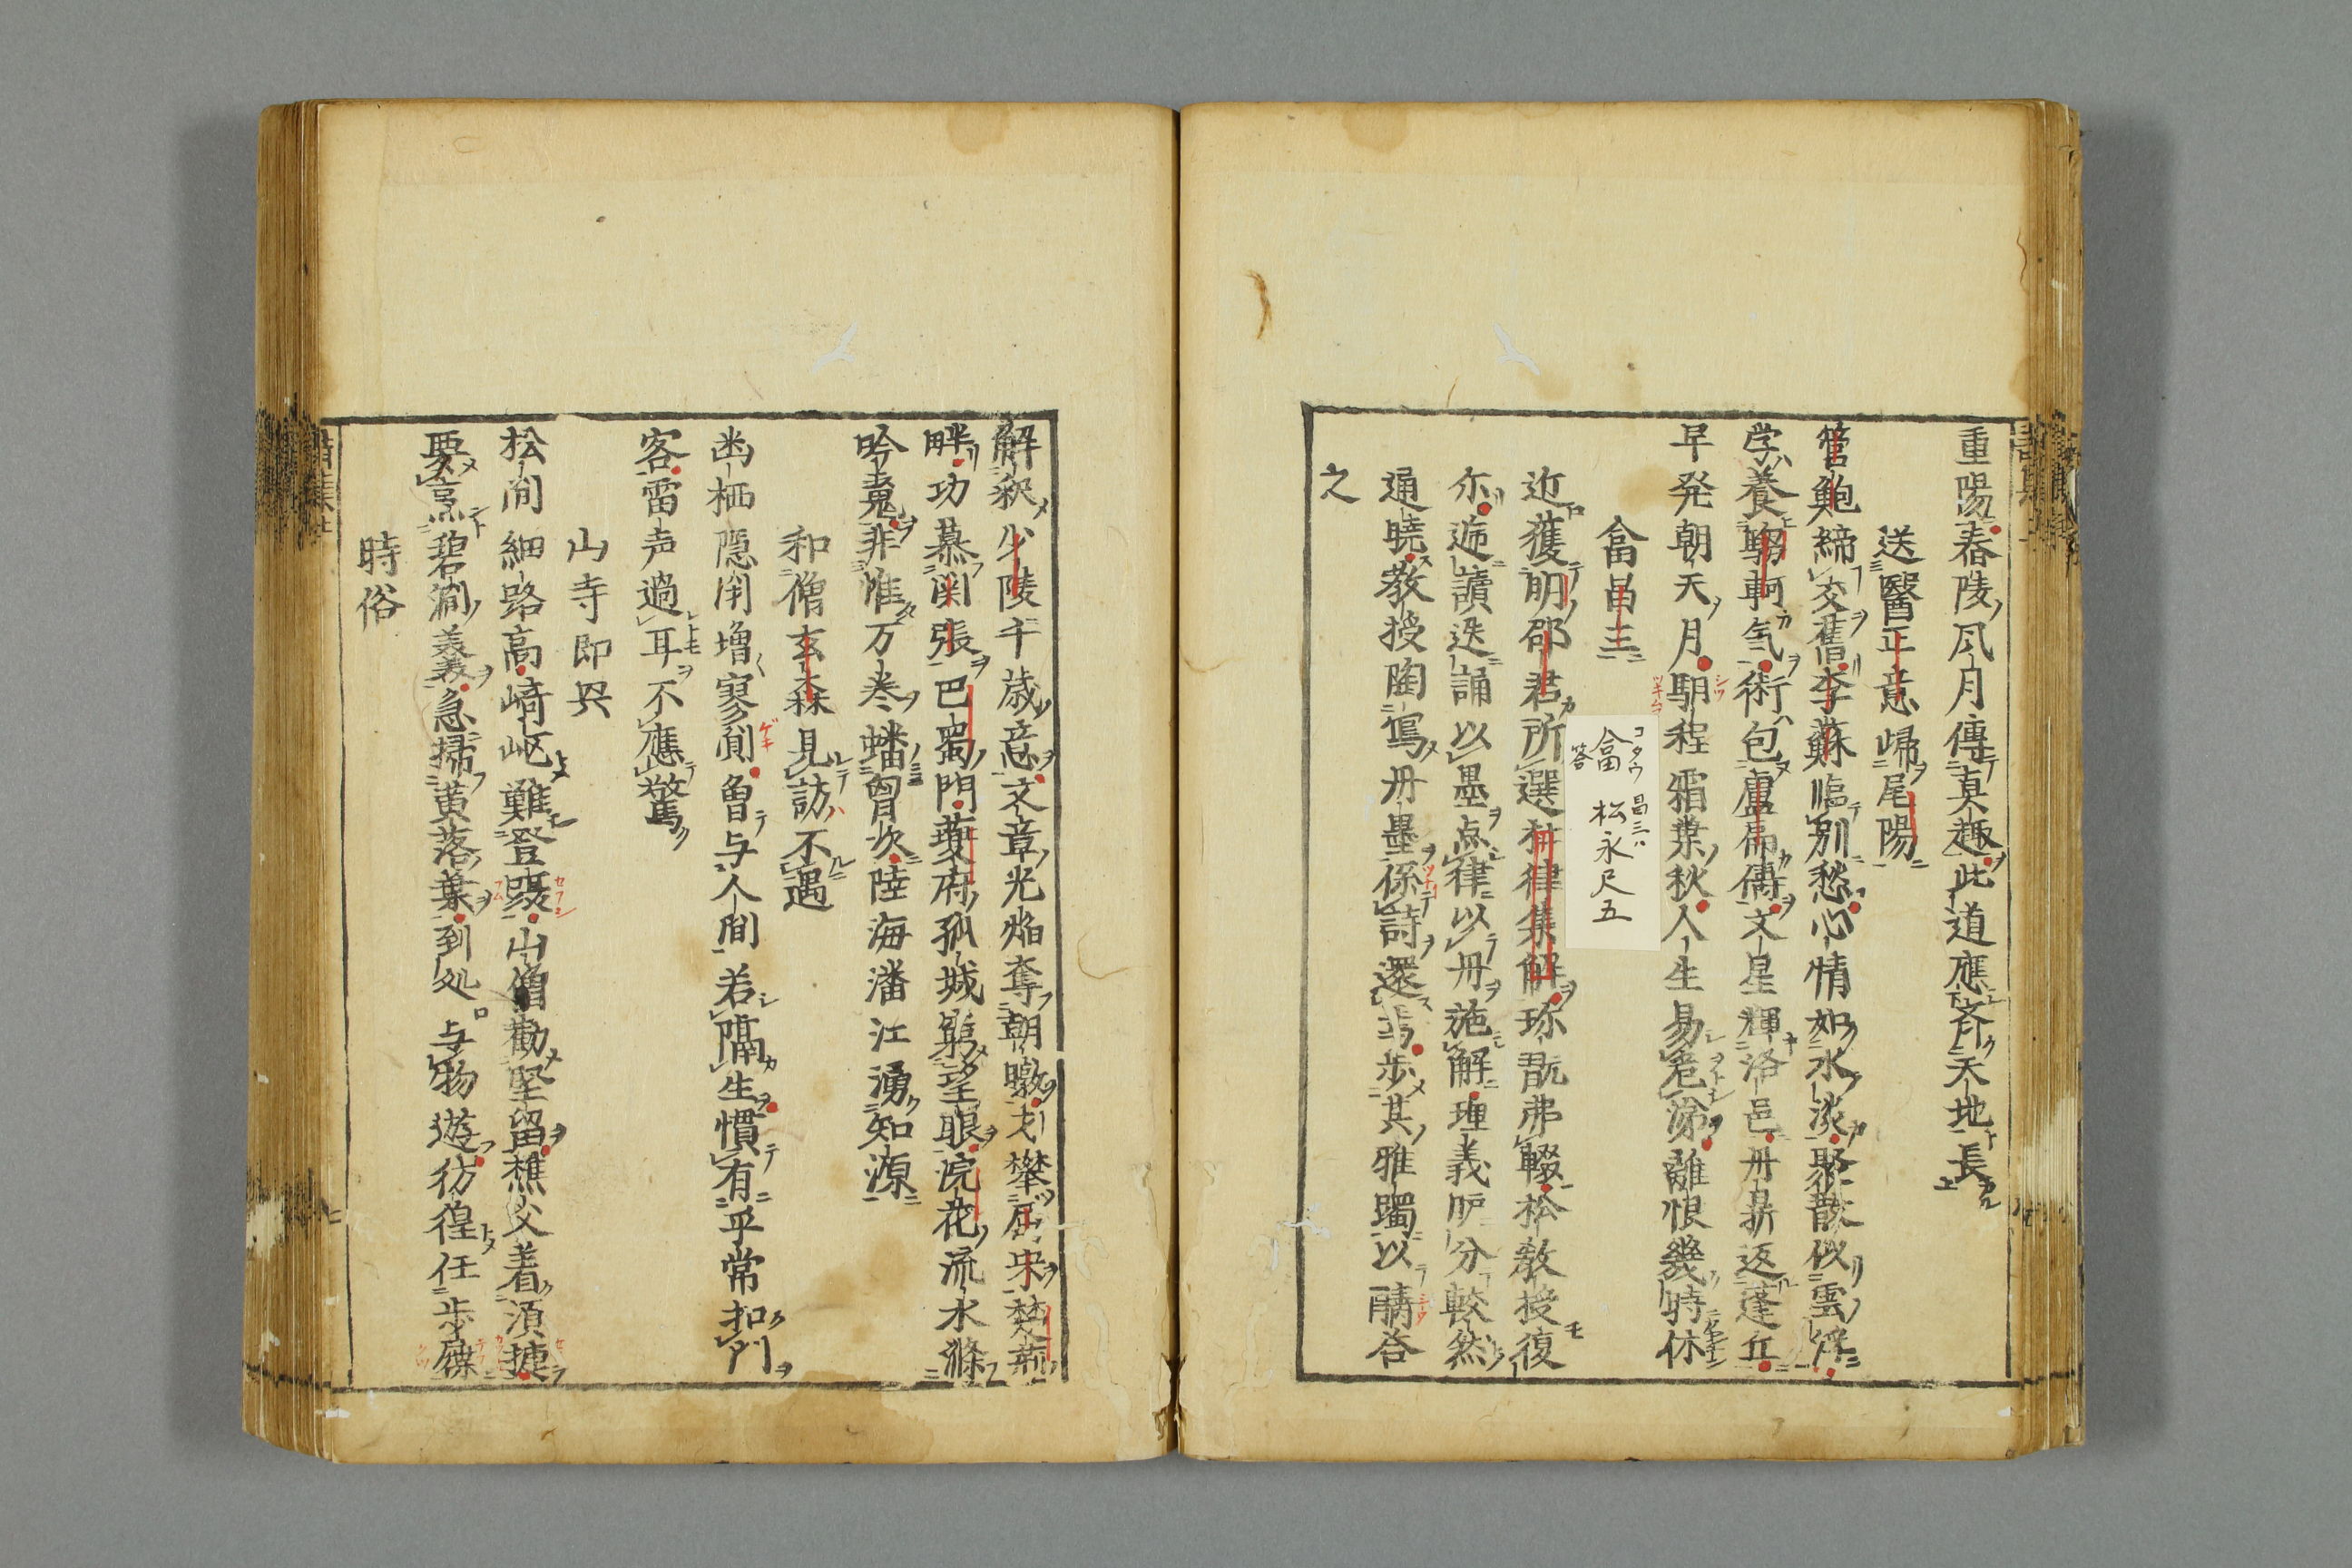 重陽春陵風月傳真趣此道應齊天地長
送醫正意歸尾陽
管鮑締交舊李蘇臨別愁心情如水淡聚散似雲浮
学養騶軻気術包盧扁儔文星輝洛邑丹鼎返蓬丘
早発朝天月馹程霜葉秋人生易老涕離恨幾時休
畣昌三
近獲明邵君所選杜律集解珎翫弗輟松教授復
尓迤讀迭誦以墨点律以丹施解理義昈分較然
通曉教授陶寫丹墨係詩還焉步其雅躅以酬答
之
コタウ 昌三ハ
畣 松永尺五
答
解釈少陵千歳意文章光焔奪朝暾才攀屈宋楚荊
畔功慕関張巴蜀門夔府孤城窮望眼浣花流水滌
吟䰟非惟万巻蟠胷次陸海潘江湧知源
和僧玄森見訪不遇
幽栖隠閑増寥闃曾与人間若隔生慣有乎常扣門
客雷声過耳不應驚
山寺即興
松間細路高崎岖難登躡山僧勧堅留樵父着須捷
要烹碧澗羨急掃黄落葉到処与物遊彷徨任步屧
時俗